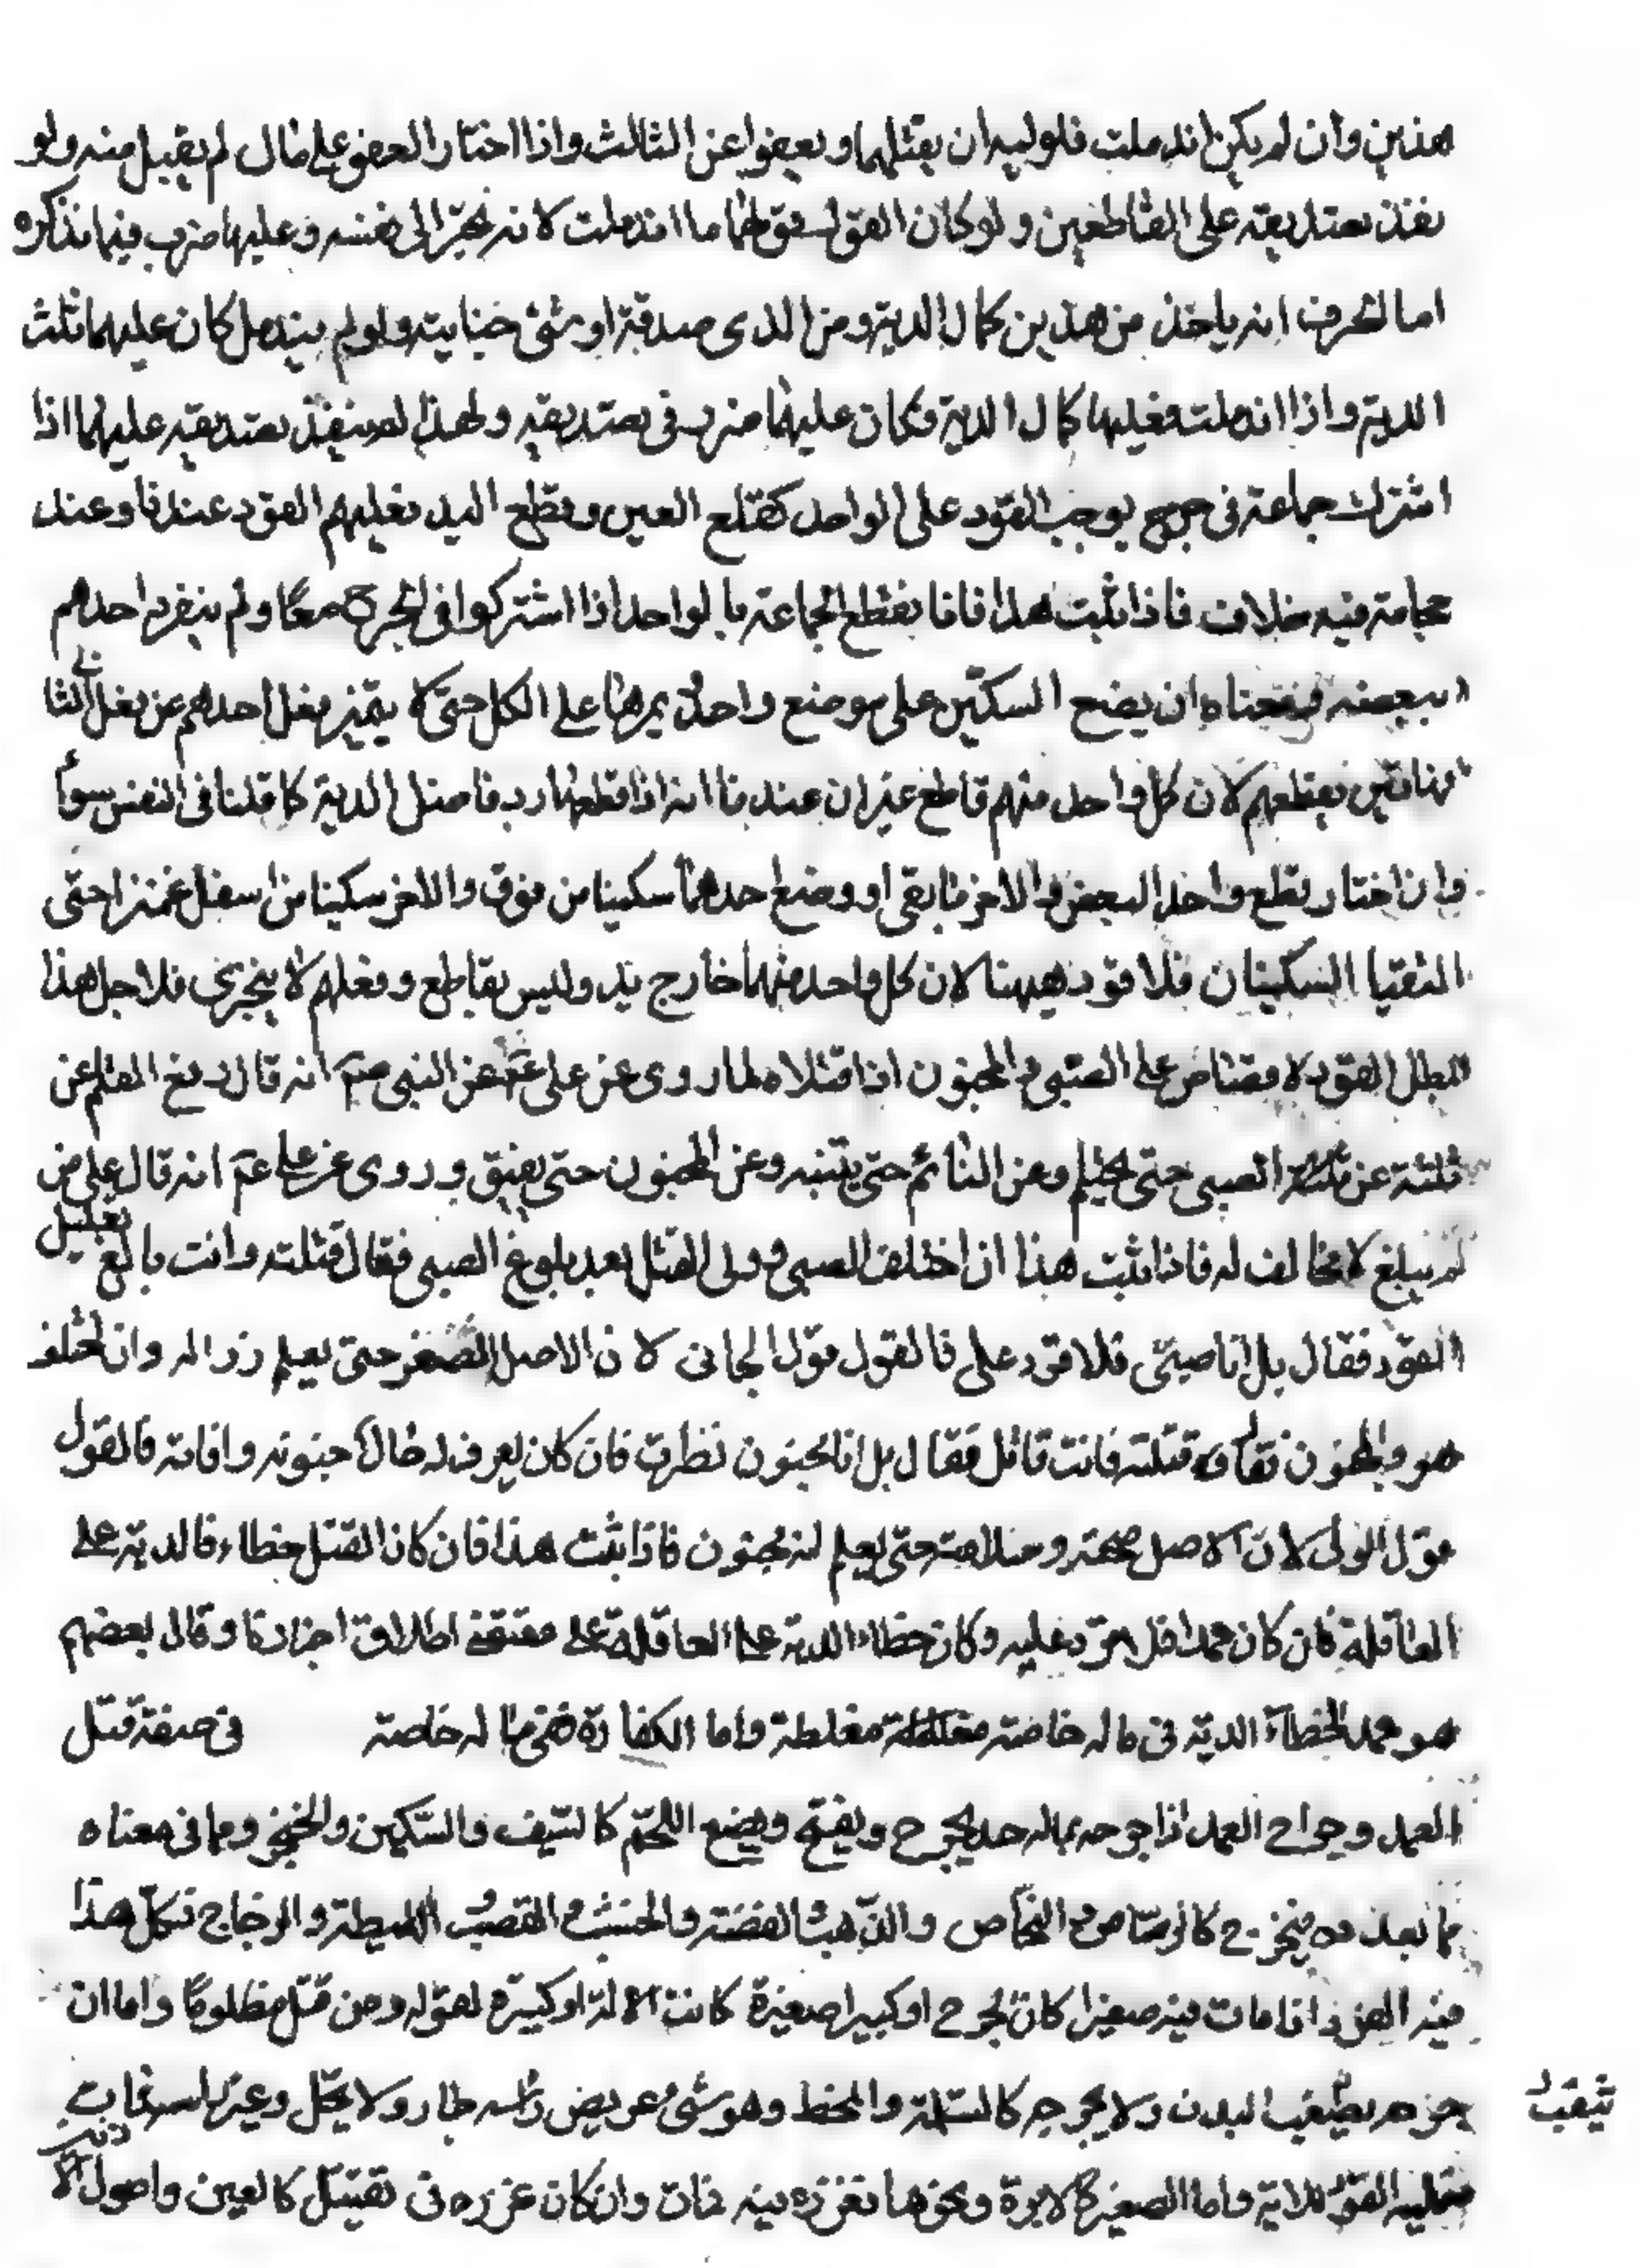 هذين وان لم يكن اندملت فلوليه ان يقتلهما ويعفوا عن الثالث واذا اختار العفو على مال لم يقبل منه ولو
نفذ تصديقه على القاطعين ولو كان القول قولهما ما اندملت لانه يجر الى نفسه وعليهما ضرب فيما نذكره
اما انه ياخذ من هذين كمال الدية ومن الذي صدقه ارش جنايته ولو لم يندمل كان عليهما ثلث
الدية واذا اندملت فعليهما كمال الدية فكان عليهما ضرب في تصديقه ولهذا لم ينفذ تصديقه عليهما اذا
اشترك جماعة في جرح يوجب القود على الواحد كقلع العين وقطع اليد فعليهم القود عندنا وعند
جماعة فيه خلاف فاذا ثبت هذا فانا نقطع الجماعة بالواحد اذا اشتركوا في الجرح معًا ولم ينفرد احدهم
ببعضه فمعناه ان يضع السكين على موضع واحد يمرها على الكل حتى لا يتميز فعل احدهم عن فعل
نقطعهم لان كل واحد منهم قاطع غير ان عندنا انه اذا قطعهما رد فاضل الدية كما قلنا في النفس سواء
وان اختار قطع واحد البعض والاخر ما بقي او وضع احدهما سكينا من فوق والاخر سكينا من اسفل غمزا حتى
التقيا السكينان فلا قود ههنا لان كل واحد منهما جارح يد وليس بقاطع وفعلهم لا يتجزى فلاجل هذا
بطل القود لا قصاص على الصبي والمجنون اذا قتلا لما روي عن علي ع عن النبي ص انه قال رفع القلم عن
ثلثة عن الصبي حتى يحتلم وعن النائم حتى ينتبه وعن المجنون حتى يفيق وروي عن علي ع انه قال
لم يبلغ لا مخالف له فاذا ثبت هذا اذا اختلف الصبي وولي القتيل بعد بلوغ الصبي فقال قتلته وانت بالغ
القود فقال بل انا صبي فلا قود علي فالقول قول الجاني لان الاصل الصغر حتى يعلم زواله وان اختلف
هو والمجنون فقال قتلته فانت قاتل فقال بل انا مجنون نظرت فان كان يعرف له حال جنونه وافاقته فالقول
قول الولي لان الاصل صحته وسلامته حتى يعلم انه مجنون فاذا ثبت هذا فان كان القتل خطاء فالدية على
العاقلة فان كان عمدا فلا قود عليه وكان خطاء الدية على العاقلة على مقتضى اطلاق اخبارنا وقال بعضهم
هو عمد الخطاء الدية في ماله خاصة مغلظة مغلظة واما الكفارة ففي ماله خاصة في صفة قتل
العمد وجراح العمد اذا جرحه بماله حد يجرح ويفتح ويبضع اللحم كالسيف والسكين والخنجر وما في معناه
مما يحدد فيجرح كالرصاص والنحاس والذهب والفضة والخشب والقصب الليطة والزجاج فكل هذا
فيه القود اذا مات فيه صغيرا كان الجرح او كبيرا صغيرة كانت الالة او كبيرة لقوله ومن قتل مظلوما واما ان
جرحه يثقب البدن ولا يجرحه كالمسلة والمخيط وهو شيء عريض راسه حاد ولا
يثقب
فعليه القود للاية واما الصغير كالابرة ونحوها فغرزه فيه فمات وان كان غرزه في مقتل كالعين واصول الاذنين